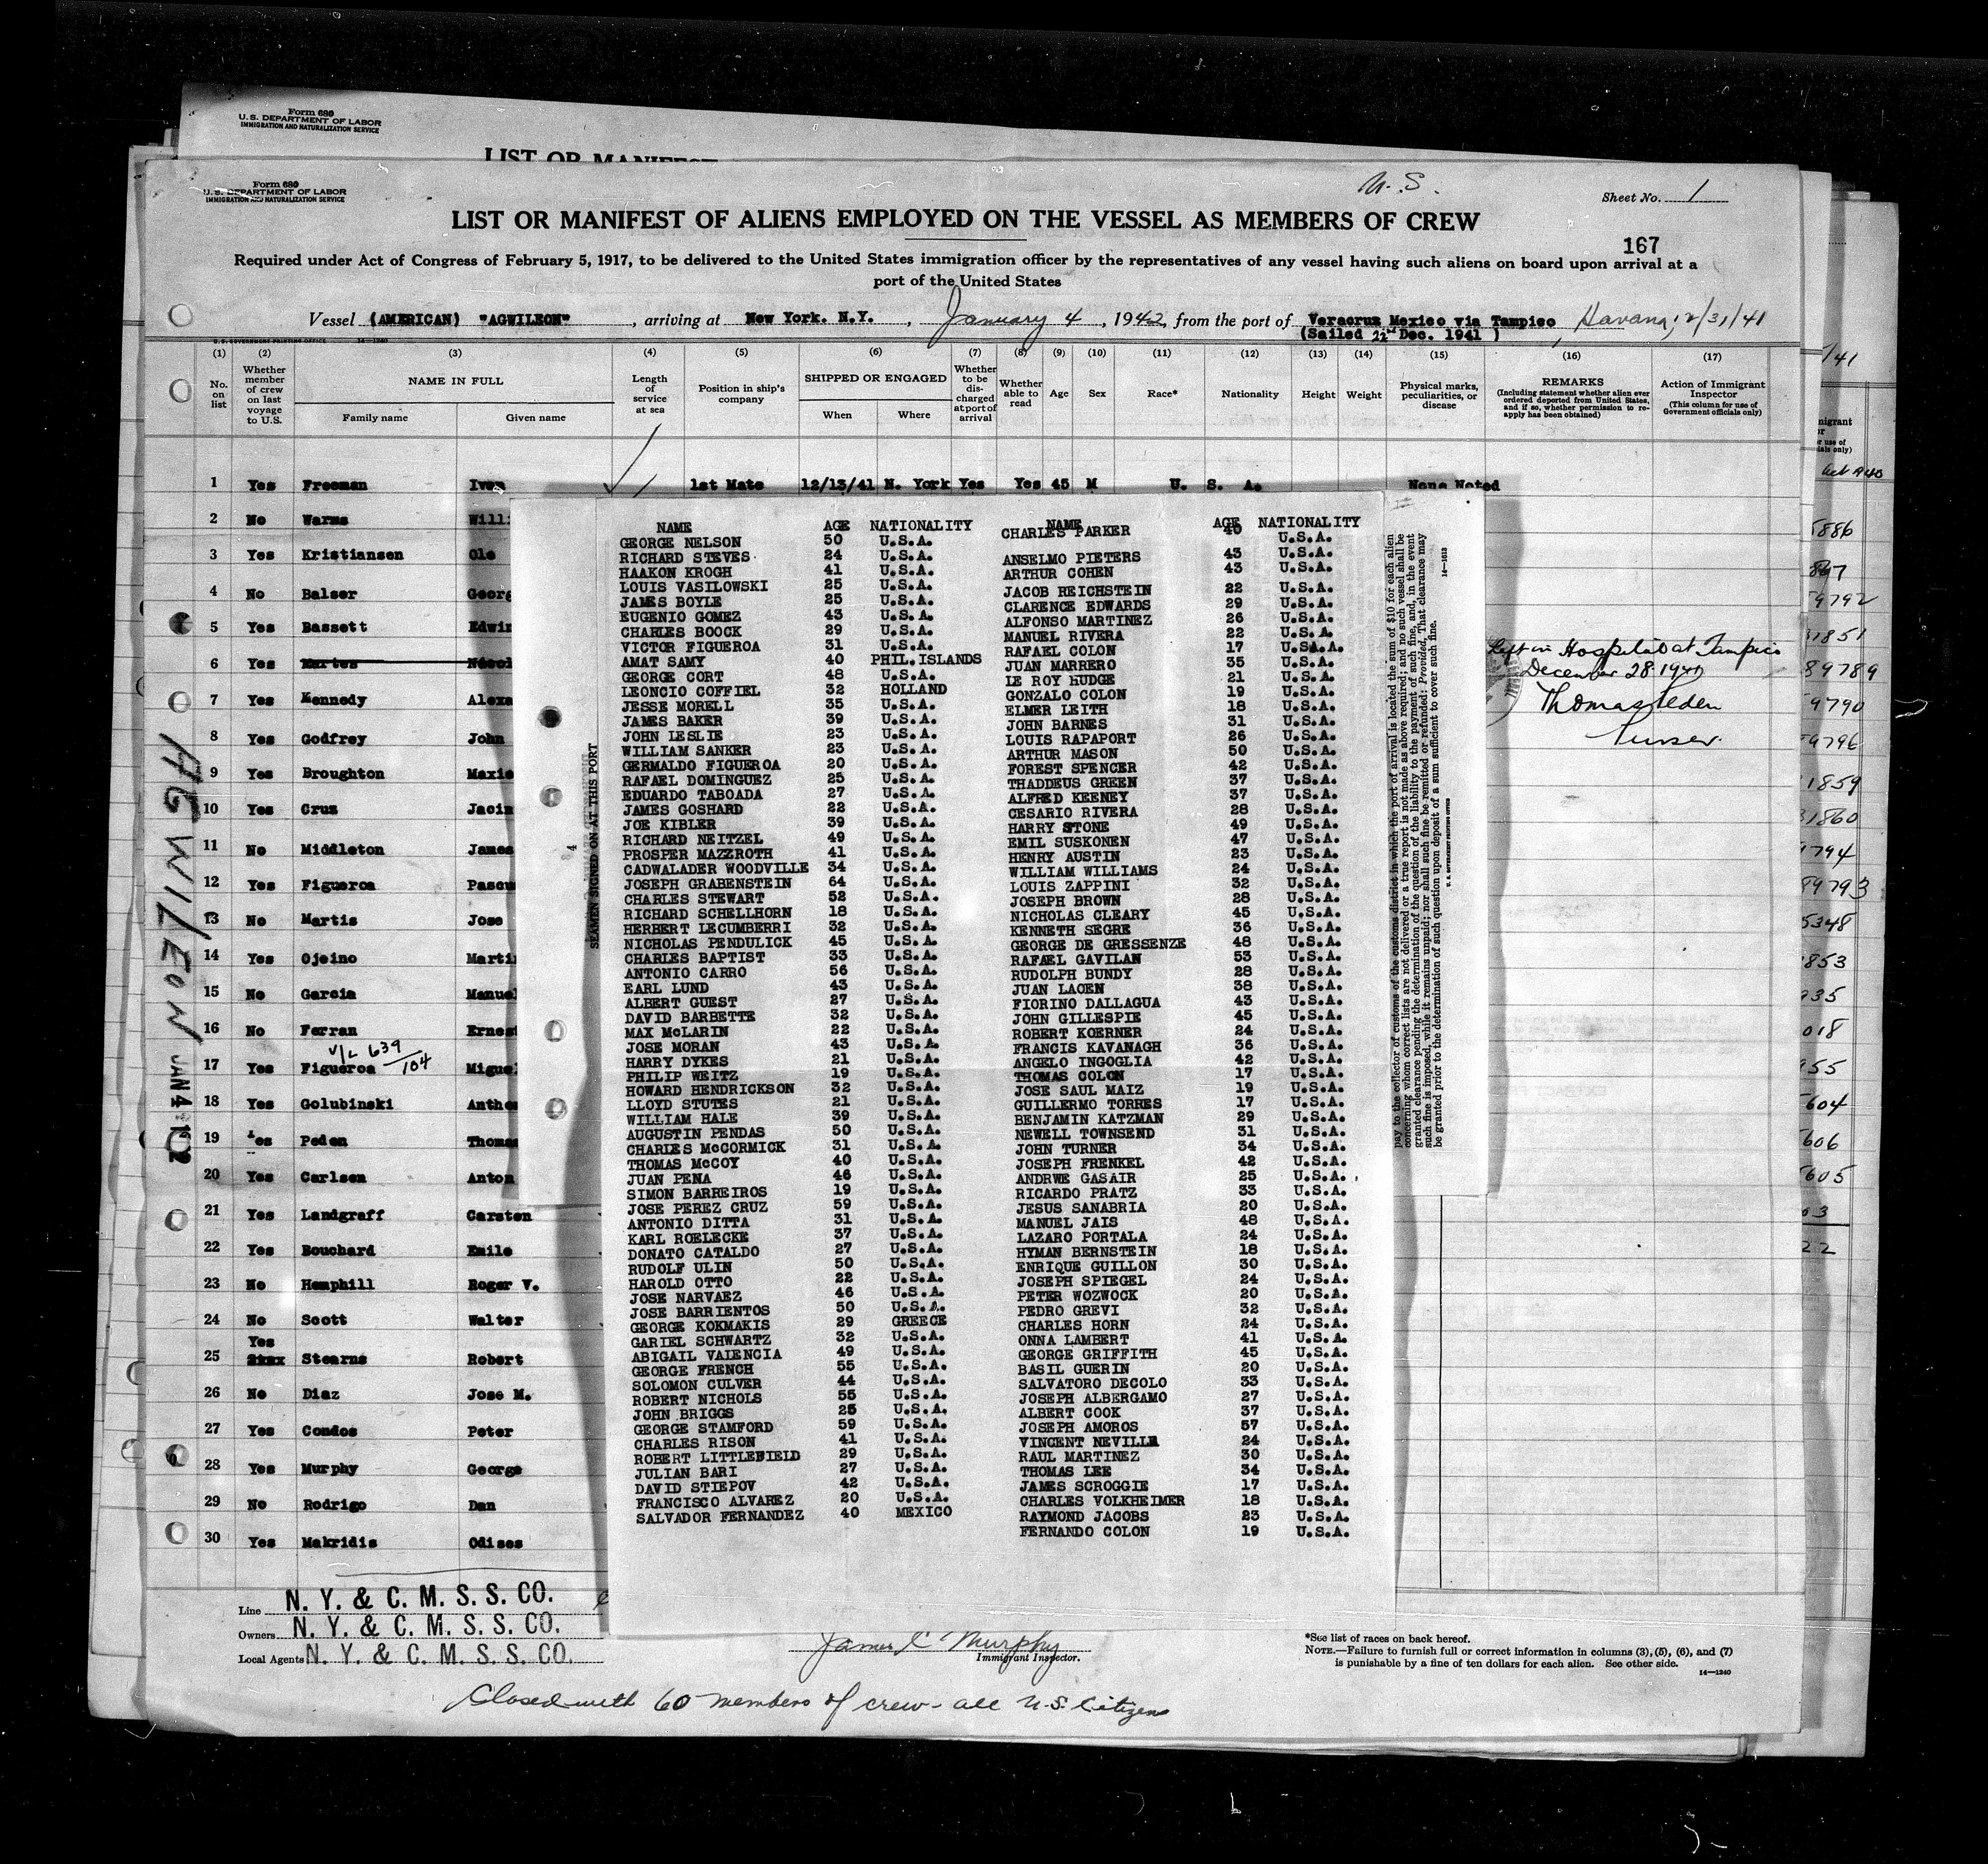 Form 680
U. S. DEPARTMENT OF LABOR
IMMIGRATION AND NATURALIZATION SERVICE
LIST OR MANIFEST
Form 680
U. S. DEPARTMENT OF LABOR
IMMIGRATION AND NATURALIZATION SERVICE
U.S.
Sheet No. 1
LIST OR MANIFEST OF ALIENS EMPLOYED ON THE VESSEL AS MEMBERS OF CREW
167
Required under Act of Congress of February 5, 1917, to be delivered to the United States immigration officer by the representatives of any vessel having such aliens on board upon arrival at a
port of the United States
Vessel (AMERICAN) "AGWILEON", arriving at New York. N.Y., January 4, 1942, from the port of Veracruz Mexico via Tampico Havana, 12/31/41
(Sailed 22nd Dec. 1941 )
U. S. GOVERNMENT PRINTING OFFICE 14—1240
(1) (2) (3) (4) (5) (6) (7) (8) (9) (10) (11) (12) (13) (14) (15) (16) (17)
No. on list
Whether member of crew on last voyage to U.S.
NAME IN FULL
Family name Given name
Length of service at sea
Position in ship's company
SHIPPED OR ENGAGED
When Where
Whether to be discharged at port of arrival
Whether able to read
Age
Sex
Race*
Nationality
Height
Weight
Physical marks, peculiarities, or disease
REMARKS
(Including statement whether alien ever ordered deported from United States, and if so, whether permission to reapply has been obtained)
Action of Immigrant Inspector
(This column for use of Government officials only)
1 Yes Freeman Iven 1st Mate 12/13/41 N. York Yes Yes 45 M U. S. A. None Noted
2 No Warms Willi
3 Yes Kristiansen Ole
4 No Balser Georg
5 Yes Bassett Edwin
6 Yes Martes Nicol
Left in Hospital at Tampico
December 28 1941
Thomas Peden
Purser.
7 Yes Kennedy Alexa
8 Yes Godfrey John
9 Yes Broughton Maxie
10 Yes Cruz Jacin
11 No Middleton James
12 Yes Figueroa Pascu
13 No Martis Jose
14 Yes Ojeino Marti
15 No Garcia Manuel
16 No Ferran Ernest
V/L 639/104
17 Yes Figueroa Miguel
18 Yes Golubinski Antho
19 Yes Peden Thomas
20 Yes Carlsen Anton
21 Yes Landgraff Carsten
22 Yes Bouchard Emile
23 No Hemphill Roger V.
24 No Scott Walter
25 Yes Stearns Robert
26 No Diaz Jose M.
27 Yes Condos Peter
28 Yes Murphy George
29 No Rodrigo Dan
30 Yes Makridis Odises
AGWILEON JAN 4 1942
SEAMEN SIGNED ON AT THIS PORT
4
NAME AGE NATIONALITY
GEORGE NELSON 50 U.S.A.
RICHARD STEVES 24 U.S.A.
HAAKON KROGH 41 U.S.A.
LOUIS VASILOWSKI 25 U.S.A.
JAMES BOYLE 25 U.S.A.
EUGENIO GOMEZ 43 U.S.A.
CHARLES BOOCK 29 U.S.A.
VICTOR FIGUEROA 31 U.S.A.
AMAT SAMY 40 PHIL. ISLANDS
GEORGE CORT 48 U.S.A.
LEONCIO COFFIEL 32 HOLLAND
JESSE MORELL 35 U.S.A.
JAMES BAKER 39 U.S.A.
JOHN LESLIE 23 U.S.A.
WILLIAM SANKER 23 U.S.A.
GERMALDO FIGUEROA 20 U.S.A.
RAFAEL DOMINGUEZ 25 U.S.A.
EDUARDO TABOADA 27 U.S.A.
JAMES GOSHARD 22 U.S.A.
JOE KIBLER 39 U.S.A.
RICHARD NEITZEL 49 U.S.A.
PROSPER MAZZROTH 41 U.S.A.
CADWALADER WOODVILLE 34 U.S.A.
JOSEPH GRABENSTEIN 64 U.S.A.
CHARLES STEWART 52 U.S.A.
RICHARD SCHELLHORN 18 U.S.A.
HERBERT LECUMBERRI 32 U.S.A.
NICHOLAS PENDULICK 45 U.S.A.
CHARLES BAPTIST 33 U.S.A.
ANTONIO CARRO 56 U.S.A.
EARL LUND 43 U.S.A.
ALBERT GUEST 27 U.S.A.
DAVID BARBETTE 32 U.S.A.
MAX McLARIN 22 U.S.A.
JOSE MORAN 43 U.S.A.
HARRY DYKES 21 U.S.A.
PHILIP WEITZ 19 U.S.A.
HOWARD HENDRICKSON 32 U.S.A.
LLOYD STUTES 21 U.S.A.
WILLIAM HALE 39 U.S.A.
AUGUSTIN PENDAS 50 U.S.A.
CHARLES McCORMICK 31 U.S.A.
THOMAS McCOY 40 U.S.A.
JUAN PENA 46 U.S.A.
SIMON BARREIROS 19 U.S.A.
JOSE PEREZ CRUZ 59 U.S.A.
ANTONIO DITTA 31 U.S.A.
KARL ROELECKE 37 U.S.A.
DONATO CATALDO 27 U.S.A.
RUDOLF ULIN 50 U.S.A.
HAROLD OTTO 22 U.S.A.
JOSE NARVAEZ 46 U.S.A.
JOSE BARRIENTOS 50 U.S.A.
GEORGE KOKMAKIS 29 GREECE
GARIEL SCHWARTZ 32 U.S.A.
ABIGAIL VALENCIA 49 U.S.A.
GEORGE FRENCH 55 U.S.A.
SOLOMON CULVER 44 U.S.A.
ROBERT NICHOLS 55 U.S.A.
JOHN BRIGGS 25 U.S.A.
GEORGE STAMFORD 59 U.S.A.
CHARLES RISON 41 U.S.A.
ROBERT LITTLEFIELD 29 U.S.A.
JULIAN BARI 27 U.S.A.
DAVID STIEPOV 42 U.S.A.
FRANCISCO ALVAREZ 20 U.S.A.
SALVADOR FERNANDEZ 40 MEXICO
NAME AGE NATIONALITY
CHARLES PARKER 40 U.S.A.
ANSELMO PIETERS 43 U.S.A.
ARTHUR COHEN 43 U.S.A.
JACOB REICHSTEIN 22 U.S.A.
CLARENCE EDWARDS 29 U.S.A.
ALFONSO MARTINEZ 26 U.S.A.
MANUEL RIVERA 22 U.S.A.
RAFAEL COLON 17 U.S.A.
JUAN MARRERO 35 U.S.A.
LE ROY HUDGE 21 U.S.A.
GONZALO COLON 19 U.S.A.
ELMER LEITH 18 U.S.A.
JOHN BARNES 31 U.S.A.
LOUIS RAPAPORT 26 U.S.A.
ARTHUR MASON 50 U.S.A.
FOREST SPENCER 42 U.S.A.
THADDEUS GREEN 37 U.S.A.
ALFRED KEENEY 37 U.S.A.
CESARIO RIVERA 28 U.S.A.
HARRY STONE 49 U.S.A.
EMIL SUSKONEN 47 U.S.A.
HENRY AUSTIN 23 U.S.A.
WILLIAM WILLIAMS 24 U.S.A.
LOUIS ZAPPINI 32 U.S.A.
JOSEPH BROWN 28 U.S.A.
NICHOLAS CLEARY 45 U.S.A.
KENNETH SEGRE 36 U.S.A.
GEORGE DE GRESSENZE 48 U.S.A.
RAFAEL GAVILAN 53 U.S.A.
RUDOLPH BUNDY 28 U.S.A.
JUAN LAOEN 38 U.S.A.
FIORINO DALLAGUA 43 U.S.A.
JOHN GILLESPIE 45 U.S.A.
ROBERT KOERNER 24 U.S.A.
FRANCIS KAVANAGH 36 U.S.A.
ANGELO INGOGLIA 42 U.S.A.
THOMAS COLON 17 U.S.A.
JOSE SAUL MAIZ 19 U.S.A.
GUILLERMO TORRES 17 U.S.A.
BENJAMIN KATZMAN 29 U.S.A.
NEWELL TOWNSEND 31 U.S.A.
JOHN TURNER 34 U.S.A.
JOSEPH FRENKEL 42 U.S.A.
ANDRWE GASAIR 25 U.S.A.
RICARDO PRATZ 33 U.S.A.
JESUS SANABRIA 20 U.S.A.
MANUEL JAIS 48 U.S.A.
LAZARO PORTALA 24 U.S.A.
HYMAN BERNSTEIN 18 U.S.A.
ENRIQUE GUILLON 30 U.S.A.
JOSEPH SPIEGEL 24 U.S.A.
PETER WOZWOCK 20 U.S.A.
PEDRO GREVI 32 U.S.A.
CHARLES HORN 24 U.S.A.
ONNA LAMBERT 41 U.S.A.
GEORGE GRIFFITH 45 U.S.A.
BASIL GUERIN 20 U.S.A.
SALVATORO DECOLO 33 U.S.A.
JOSEPH ALBERGAMO 27 U.S.A.
ALBERT COOK 37 U.S.A.
JOSEPH AMOROS 57 U.S.A.
VINCENT NEVILLE 24 U.S.A.
RAUL MARTINEZ 30 U.S.A.
THOMAS LEE 34 U.S.A.
JAMES SCROGGIE 17 U.S.A.
CHARLES VOLKHEIMER 18 U.S.A.
RAYMOND JACOBS 23 U.S.A.
FERNANDO COLON 19 U.S.A.
pay to the collector of customs of the customs district in which the port of arrival is located the sum of $10 for each alien
concerning whom correct lists are not delivered or a true report is not made as above required; and no such vessel shall be
granted clearance pending the determination of the question of the liability to the payment of such fine, and, in the event
such fine is imposed, while it remains unpaid; nor shall such fine be remitted or refunded: Provided, That clearance may
be granted prior to the determination of such question upon deposit of a sum sufficient to cover such fine.
U. S. GOVERNMENT PRINTING OFFICE
14—1613
/41
migrant
or
r use of
ials only)
5886
867
9792
31851
89789
9790
9796
1859
31860
9794
89793
5348
1853
935
018
955
5604
5606
5605
63
22
Line N. Y. & C. M. S. S. CO.
Owners N. Y. & C. M. S. S. CO.
Local Agents N. Y. & C. M. S. S. CO.
James C Murphy
Immigrant Inspector.
*See list of races on back hereof.
NOTE.—Failure to furnish full or correct information in columns (3), (5), (6), and (7)
is punishable by a fine of ten dollars for each alien. See other side.
14—1240
Closed with 60 members of crew - all U.S. Citizens